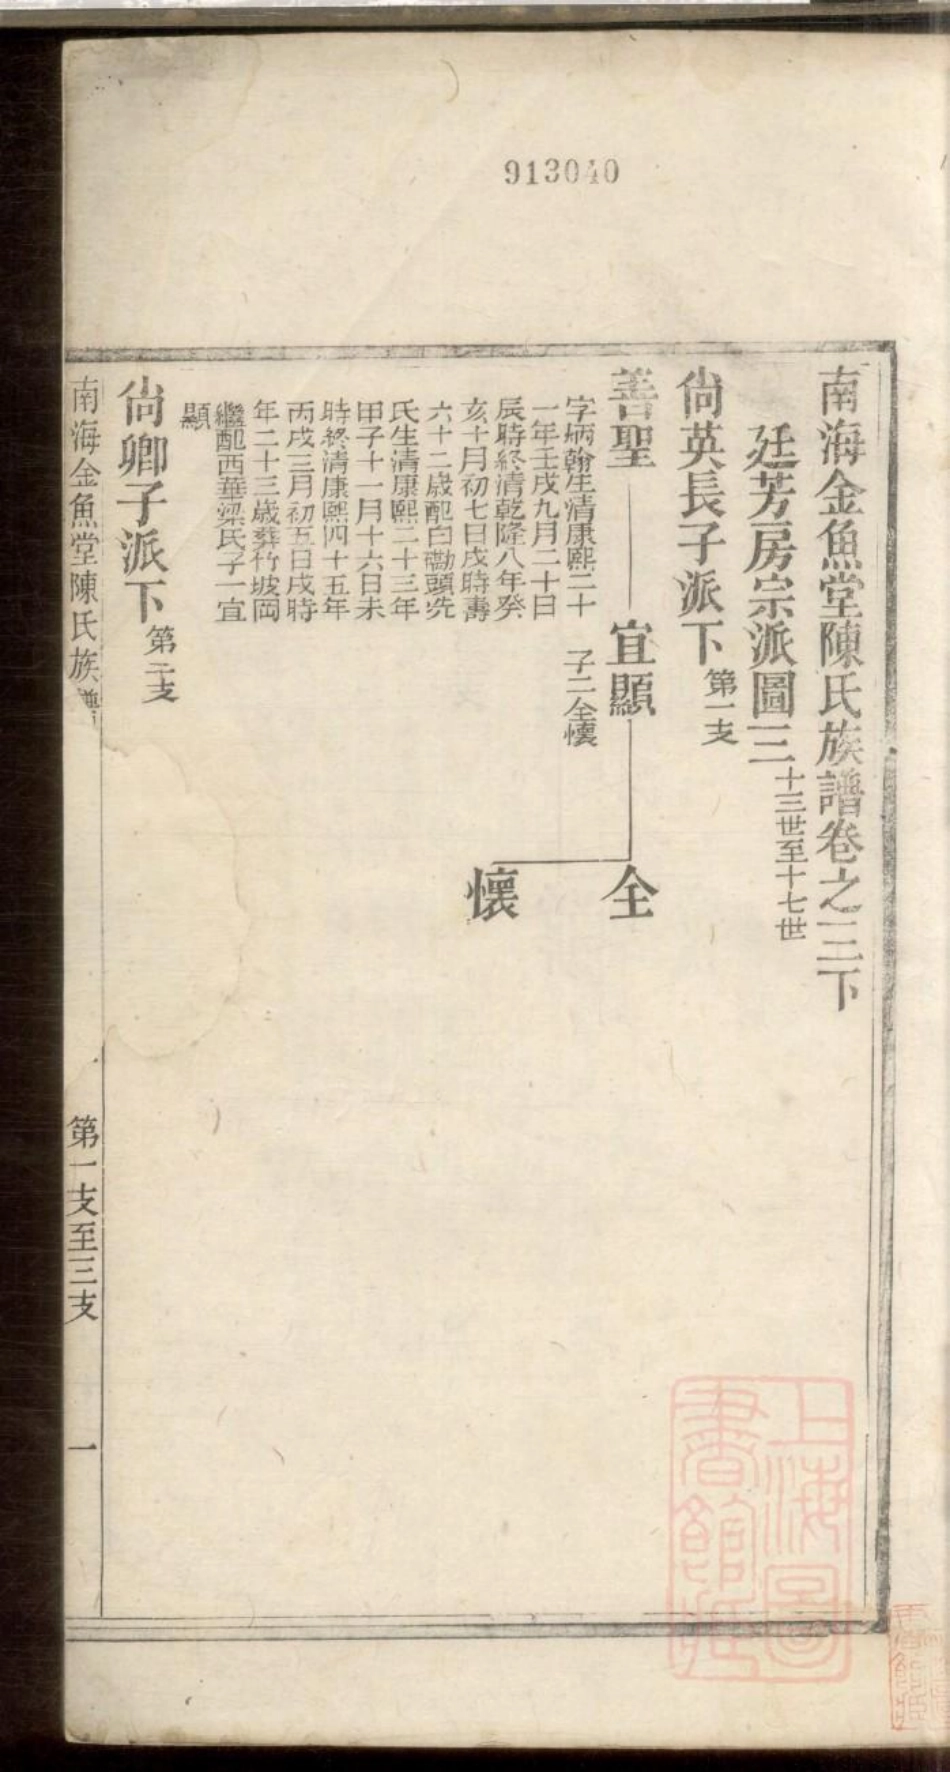 913040
南海金魚堂陳氏族譜卷之三下
廷芳房宗派圖三十三世至十七世
尙英長子派下第一支
善聖
宜顯
全
懷
字炳翰生淸康熙二十
一年壬戌九月二十日
辰時終淸乾隆八年癸
亥十月初七日戌時壽
六十二歲配白磡頭冼
氏生淸康熙二十三年
甲子十一月十六日未
時終淸康熙四十五年
丙戌三月初五日戌時
年二十三歲葬竹坡岡
繼配西華梁氏子一宜
顯
子二全懷
尙卿子派下第二支
南海金魚堂陳氏族譜
第一支至三支
一
上海圖書館藏